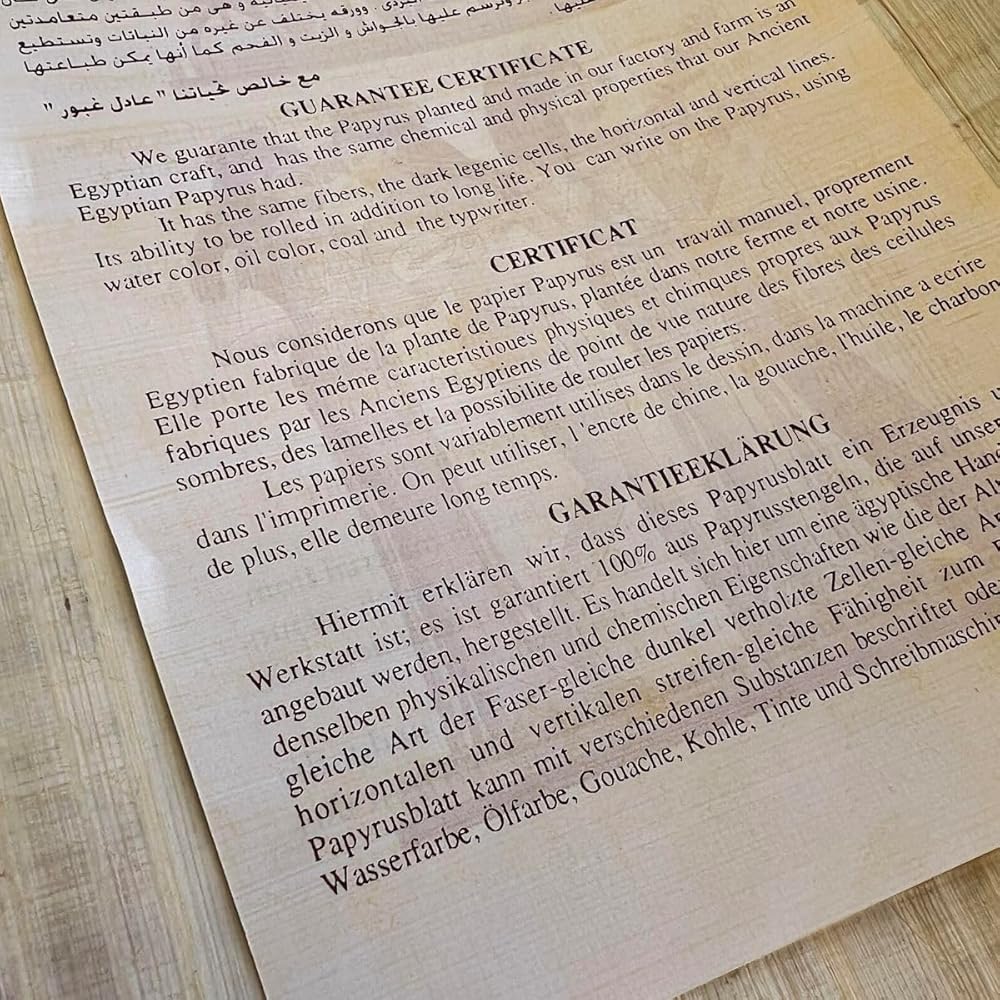 وهى من طبقتين متعامدتين
ووورقه يختلف عن غيره من النباتات وتستطيع
وترسم عليها بالجواش و الزيت و الفحم كما أنها يمكن طباعتها
عليها.
مع خالص تحياتنا " عادل غبور "
GUARANTEE CERTIFICATE
We guarante that the Papyrus planted and made in our factory and farm is an
Egyptian craft, and has the same chemical and physical properties that our Ancient
Egyptian Papyrus had.
It has the same fibers, the dark legenic cells, the horizontal and vertical lines.
Its ability to be rolled in addition to long life. You can write on the Papyrus, using
water color, oil color, coal and the typwriter.
CERTIFICAT
Nous considerons que le papier Papyrus est un travail manuel, proprement
Egyptien fabrique de la plante de Papyrus, plantée dans notre ferme et notre usine.
Elle porte les méme caracteristioues physiques et chimques propres aux Papyrus
fabriques par les Anciens Egyptiens de point de vue nature des fibres des ceilules
sombres, des lamelles et la possibilite de rouler les papiers.
Les papiers sont variablement utilises dans le dessin, dans la machine a ecrire
dans l'imprimerie. On peut utiliser, l'encre de chine, la gouache, l'huile, le charbon
de plus, elle demeure long temps.
GARANTIEEKLÄRUNG
Hiermit erklären wir, dass dieses Papyrusblatt ein Erzeugnis
Werkstatt ist; es ist garantiert 100% aus Papyrusstengeln, die auf
angebaut werden, hergestellt. Es handelt sich hier um eine ägyptische
denselben physikalischen und chemischen Eigenschaften wie die der
gleiche Art der Faser-gleiche dunkel verholzte Zellen-gleiche
horizontalen und vertikalen streifen-gleiche Fähigheit zum
Papyrusblatt kann mit verschiedenen Substanzen beschriftet
Wasserfarbe, Ölfarbe, Gouache, Kohle, Tinte und